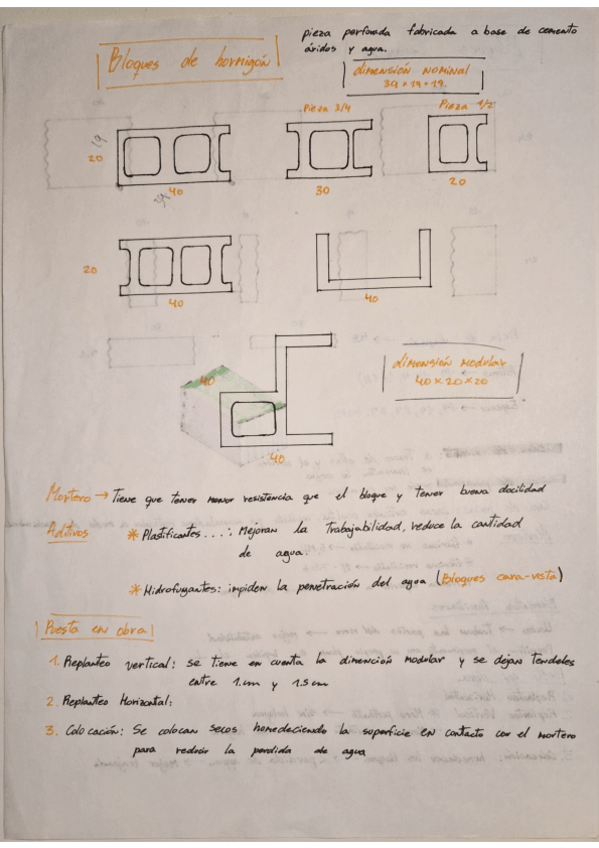 pieza perforada fabricada a base de cemento
áridos y agua.
Bloques de hormigón
dimensión nominal
39 x 19 x 19.
Pieza 3/4
Pieza 1/2
20
19
40
39
30
20
20
40
40
40
40
dimensión modular
40 x 20 x 20
Mortero → Tiene que tener menor resistencia que el bloque y tener buena docilidad
Aditivos
* Plastificantes...: Mejoran la trabajabilidad, reduce la cantidad
de agua.
* Hidrofugantes: impiden la penetración del agua (Bloques cara-vista)
Puesta en obra
1. Replanteo vertical: se tiene en cuenta la dimención modular y se dejan tendeles
entre 1cm y 1.5cm
2. Replanteo Horizontal:
3. Colocación: Se colocan secos homedeciendo la superficie en contacto con el mortero
para reducir la perdida de agua